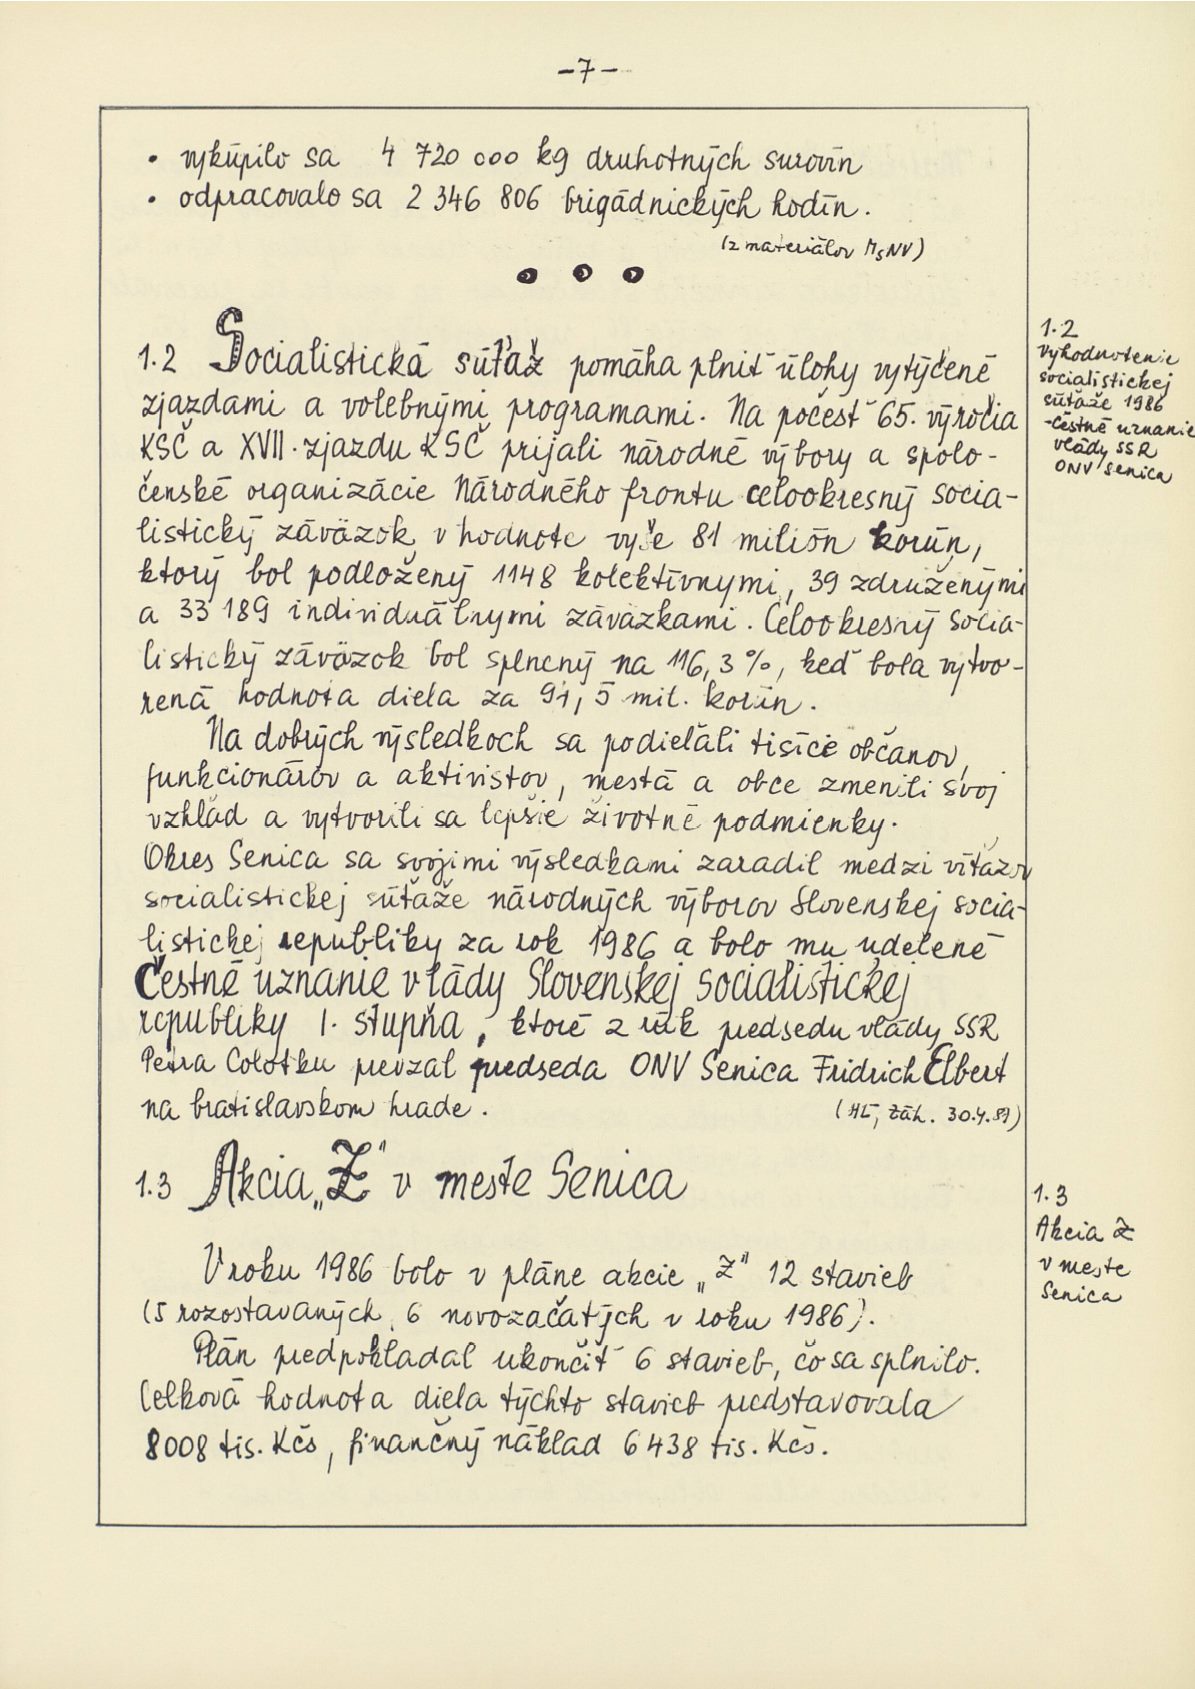 -7-
• vykúpilo sa 4 720 000 kg druhotných surovín
• odpracovalo sa 2 346 806 brigádnických hodín.
(z materiálov MsNV)
1.2 Socialistická súťaž pomáha plniť úlohy vytýčené
zjazdami a volebnými programami. Na počesť 65. výročia
KSČ a XVII. zjazdu KSČ prijali národné výbory a spolo-
čenské organizácie Národného frontu celookresný socia-
listický záväzok v hodnote vyše 81 milión korún,
ktorý bol podložený 1148 kolektívnymi, 39 združenými
a 33 189 individuálnymi záväzkami. Celookresný socia-
listický záväzok bol splnený na 116,3 %, keď bola vytvo-
rená hodnota diela za 91,5 mil. korún.
Na dobrých výsledkoch sa podieľali tisíce občanov,
funkcionárov a aktivistov, mestá a obce zmenili svoj
vzhľad a vytvorili sa lepšie životné podmienky.
Okres Senica sa svojimi výsledkami zaradil medzi víťazov
socialistickej súťaže národných výborov Slovenskej socia-
listickej republiky za rok 1986 a bolo mu udelené
Čestné uznanie vlády Slovenskej socialistickej
republiky I. stupňa, ktoré z rúk predsedu vlády SSR
Petra Colotku prevzal predseda ONV Senica Fridrich Elbert
na bratislavskom hrade.
(HĽ, Záh. 30.4.87)
1.3 Akcia „Z" v meste Senica
V roku 1986 bolo v pláne akcie „Z" 12 stavieb
(5 rozostavaných, 6 novozačatých v roku 1986).
Plán predpokladal ukončiť 6 stavieb, čo sa splnilo.
Celková hodnota diela týchto stavieb predstavovala
8008 tis. Kčs, finančný náklad 6 438 tis. Kčs.
1.2
Vyhodnotenie
socialistickej
súťaže 1986
-čestné uznanie
vlády SSR
ONV Senica
1.3
Akcia Z
v meste
Senica